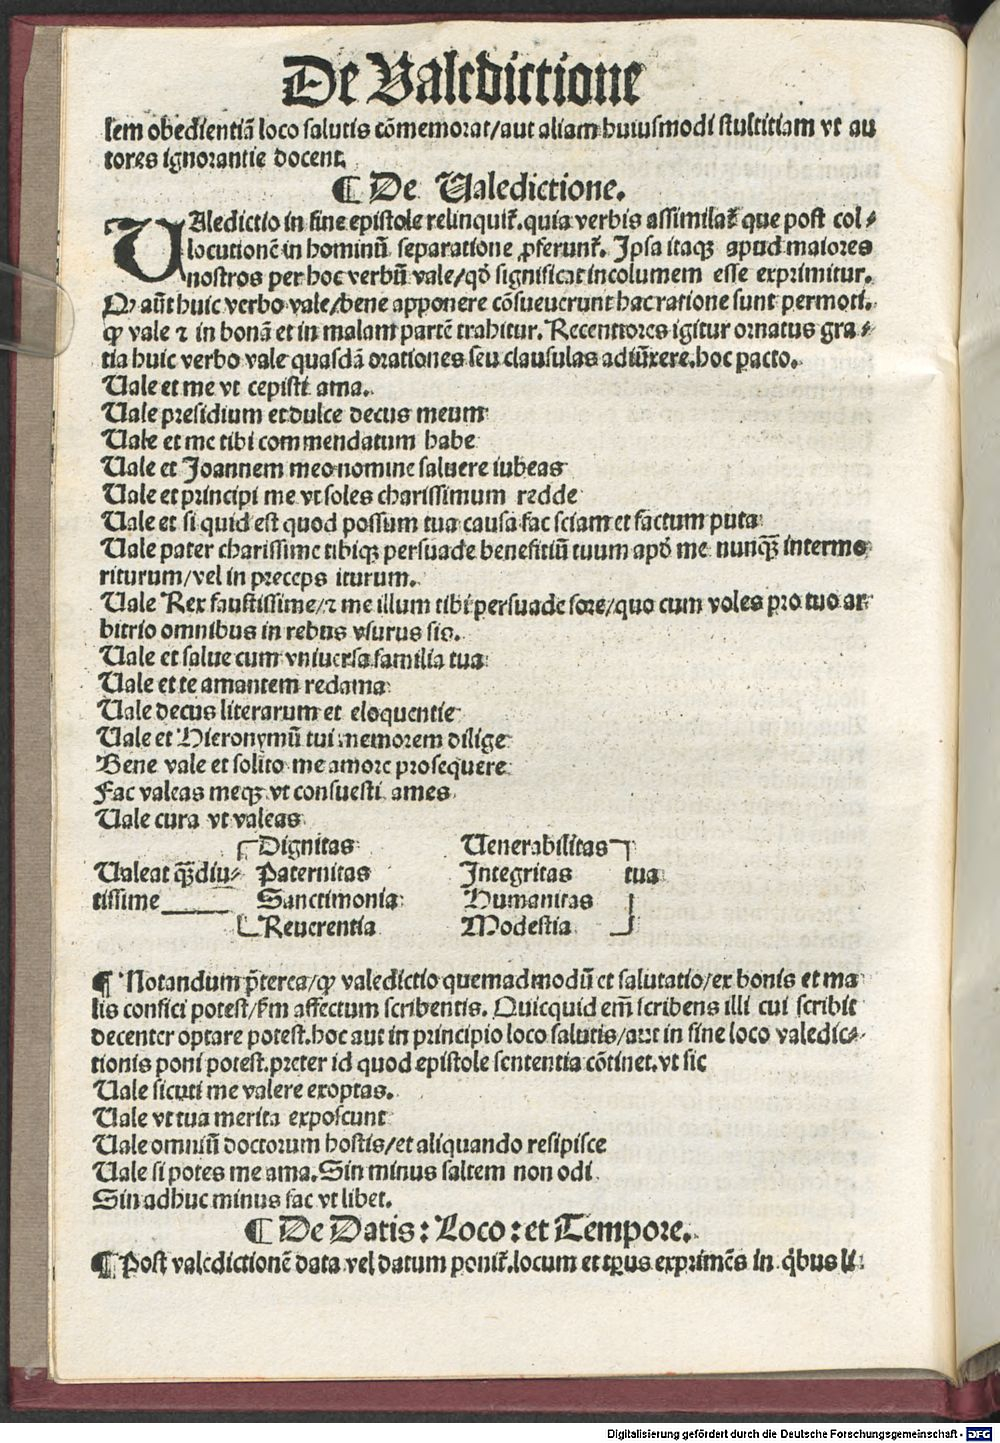 De Valedictione
lem obedientiā loco salutis cōmemorat/aut aliam huiusmodi stultitiam vt au
tores ignorantie docent.
¶ De Valedictione.
VAledictio in fine epistole relinquit̄.quia verbis assimilat̄ que post col⸗
locutionē in hominū separatione ꝓferunt̄. Ipsa itaqꝫ apud maiores
nostros per hoc verbū vale/qđ significat incolumem esse exprimitur.
Qꝫ aūt huic verbo vale/bene apponere cōsueuerunt hac ratione sunt permoti.
ꝙ vale ⁊ in bonā et in malam partē trahitur. Recentiores igitur ornatus gra⸗
tia huic verbo vale quasdā orationes seu clausulas adiūxere.hoc pacto.
Vale et me vt cepisti ama.
Vale presidium et dulce decus meum
Vale et me tibi commendatum habe
Vale et Joannem meo nomine saluere iubeas
Vale et principi me vt soles charissimum redde
Vale et si quid est quod possum tua causa fac sciam et factum puta
Vale pater charissime tibiqꝫ persuade benefitiū tuum apđ me nunqꝫ̄ intermo
riturum/vel in preceps iturum.
Vale Rex faustissime/⁊ me illum tibi persuade fore/quo cum voles pro tuo ar
bitrio omnibus in rebus vsurus sis.
Vale et salue cum vniuersa familia tua
Vale et te amantem redama
Vale decus literarum et eloquentie
Vale et Hieronymū tui memorem dilige
Bene vale et solito me amore prosequere
Fac valeas meqꝫ vt consuesti ames
Vale cura vt valeas
Dignitas Venerabilitas
Valeat qꝫ̄diu⸗ Paternitas Integritas tua
tissime Sanctimonia Humanitas
Reuerentia Modestia
¶ Notandum p̄terea/ꝙ valedictio quemadmodū et salutatio/ex bonis et ma
lis confici potest/s̄m affectum scribentis. Quicquid em̄ scribens illi cui scribit
decenter optare potest.hoc aut in principio loco salutis/aut in fine loco valedic⸗
tionis poni potest.preter id quod epistole sententia cōtinet.vt sic
Vale sicuti me valere exoptas.
Vale vt tua merita exposcunt
Vale omniū doctorum hostis/et aliquando resipisce
Vale si potes me ama. Sin minus saltem non odi
Sin adhuc minus fac vt libet.
¶ De Datis: Loco: et Tempore.
¶ Post valedictionē data vel datum ponit̄.locum et tp̄us exprimēs in q̇bus li
Digitalisierung gefördert durch die Deutsche Forschungsgemeinschaft - DFG